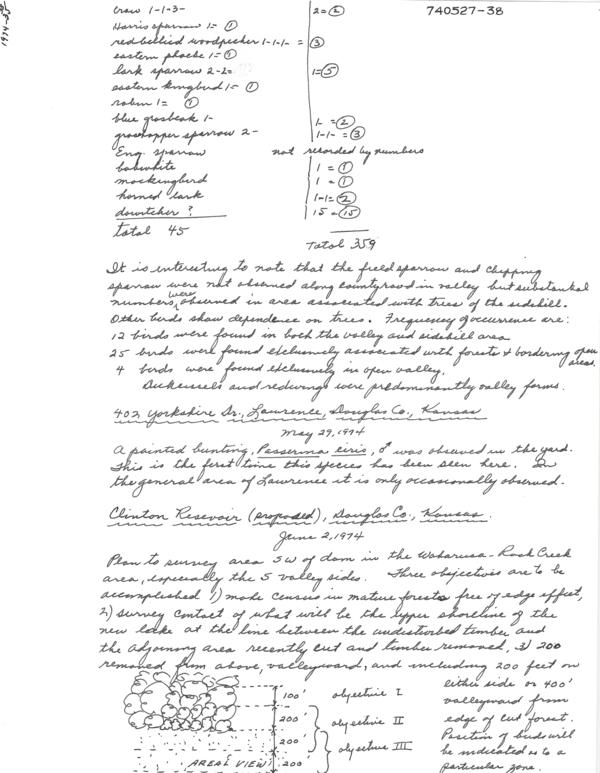 1974-35
740527-38
crow 1-1-3- 2=②
Harris sparrow 1= ①
redbellied woodpecker 1-1-1- = ③
eastern phoebe 1=①
lark sparrow 2-2= 1=⑤
eastern kingbird 1= ①
robin 1= ①
blue grosbeak 1- 1-=②
grasshopper sparrow 2- 1-1-=③
Eng. sparrow not recorded by numbers
bobwhite 1=①
mockingbird 1=①
horned lark 1-1=②
dowitcher ? 15=⑮
total 45 Total 359
It is interesting to note that the field sparrow and chipping
sparrow were not observed along county road in valley but substantial
numbers were observed in area associated with trees of the sidehill.
Other birds show dependence on trees. Frequency of occurrence are:
12 birds were found in both the valley and sidehill area
25 birds were found exclusively associated with forests & bordering open areas.
4 birds were found exclusively in open valley.
Dickcissels and redwings were predominantly valley forms.
402 Yorkshire Dr., Lawrence, Douglas Co., Kansas
May 29, 1974
A painted bunting, Passerina ciris, ♂ was observed in the yard.
This is the first time this species has been seen here. In
the general area of Lawrence it is only occasionally observed.
Clinton Resevoir (proposed), Douglas Co., Kansas.
June 2, 1974
Plan to survey area SW of dam in the Wakarusa-Rock Creek
area, especially the S valley sides. Three objectives are to be
accomplished 1) make census in mature forests free of edge effect,
2) survey contact of what will be the upper shoreline of the
new lake at the line between the undisturbed timber and
the adjoining area recently cut and timber removed, 3) 200
removed from above, valleyward, and including 200 feet on
either side or 400'
valleyward from
edge of cut forest.
Position of birds will
be indicated as to a
particular zone.
100' objective I
200' objective II
200' objective III
AREAL VIEW 200'